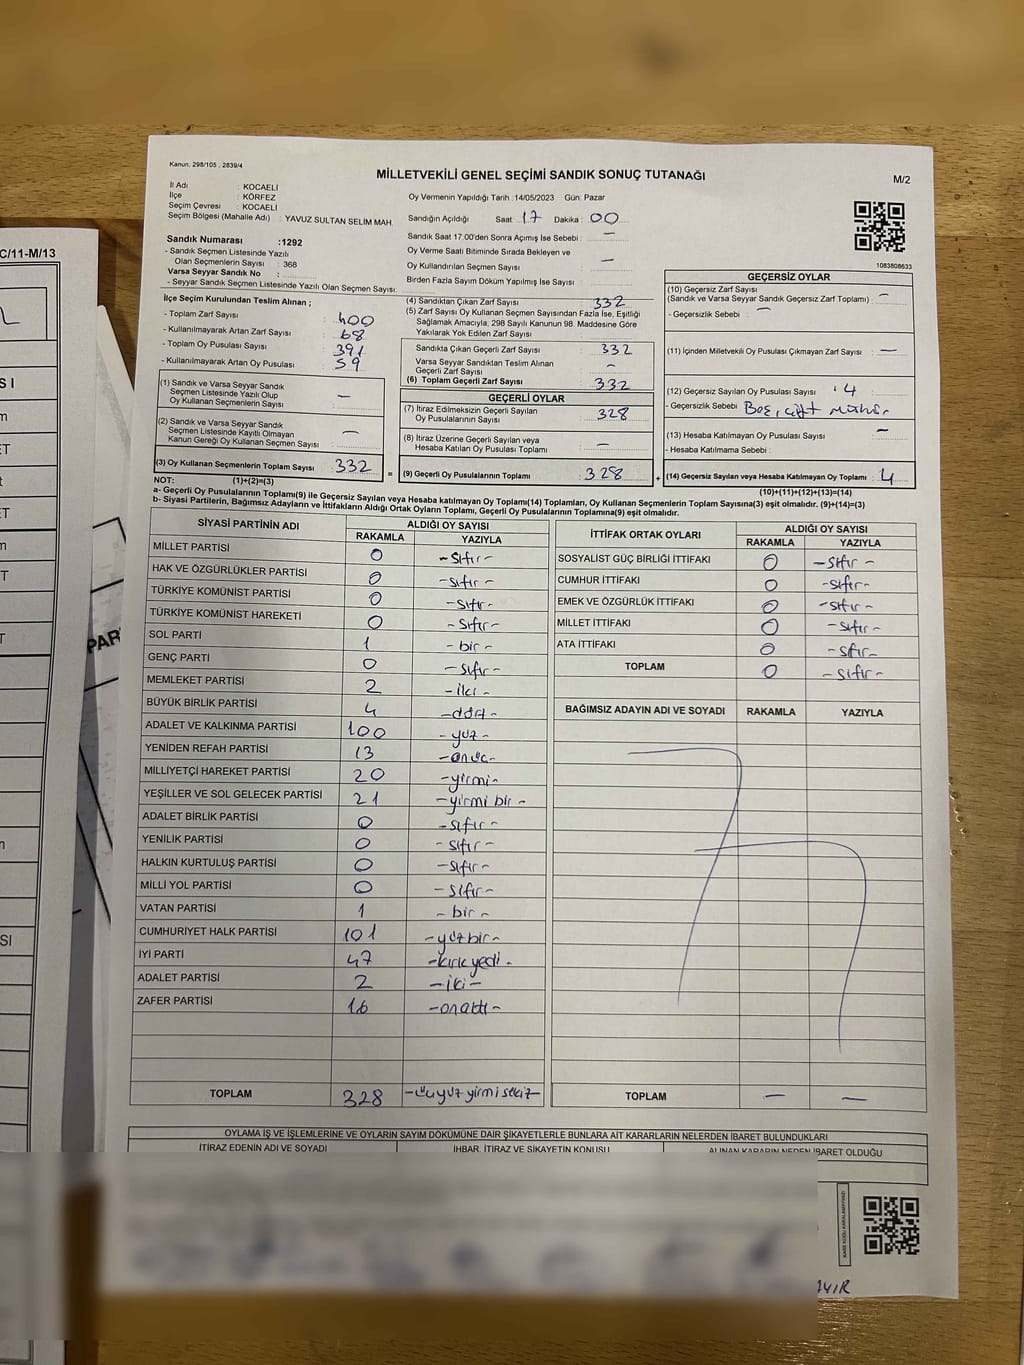 Kanun. 298/105 , 2839/4
MİLLETVEKİLİ GENEL SEÇİMİ SANDIK SONUÇ TUTANAĞI
M/2
İl Adı : KOCAELİ
İlçe : KÖRFEZ
Seçim Çevresi : KOCAELİ
Seçim Bölgesi (Mahalle Adı) : YAVUZ SULTAN SELİM MAH.
Sandık Numarası :1292
- Sandık Seçmen Listesinde Yazılı
Olan Seçmenlerin Sayısı : 368
Varsa Seyyar Sandık No :
- Seyyar Sandık Seçmen Listesinde Yazılı Olan Seçmen Sayısı:
Oy Vermenin Yapıldığı Tarih :14/05/2023 Gün: Pazar
Sandığın Açıldığı Saat 17 Dakika : 00
Sandık Saat 17.00'den Sonra Açılmış İse Sebebi : —
Oy Verme Saati Bitiminde Sırada Bekleyen ve
Oy Kullandırılan Seçmen Sayısı : —
Birden Fazla Sayım Döküm Yapılmış İse Sayısı :
1083808633
İlçe Seçim Kurulundan Teslim Alınan ;
- Toplam Zarf Sayısı : 400
- Kullanılmayarak Artan Zarf Sayısı : 68
- Toplam Oy Pusulası Sayısı : 391
- Kullanılmayarak Artan Oy Pusulası : 59
(1) Sandık ve Varsa Seyyar Sandık
Seçmen Listesinde Yazılı Olup
Oy Kullanan Seçmenlerin Sayısı : —
(2) Sandık ve Varsa Seyyar Sandık
Seçmen Listesinde Kayıtlı Olmayan
Kanun Gereği Oy Kullanan Seçmen Sayısı : —
(3) Oy Kullanan Seçmenlerin Toplam Sayısı : 332
(4) Sandıktan Çıkan Zarf Sayısı : 332
(5) Zarf Sayısı Oy Kullanan Seçmen Sayısından Fazla İse, Eşitliği
Sağlamak Amacıyla; 298 Sayılı Kanunun 98. Maddesine Göre
Yakılarak Yok Edilen Zarf Sayısı :
Sandıkta Çıkan Geçerli Zarf Sayısı : 332
Varsa Seyyar Sandıktan Teslim Alınan
Geçerli Zarf Sayısı : —
(6) Toplam Geçerli Zarf Sayısı : 332
GEÇERLİ OYLAR
(7) İtiraz Edilmeksizin Geçerli Sayılan
Oy Pusulalarının Sayısı : 328
(8) İtiraz Üzerine Geçerli Sayılan veya
Hesaba Katılan Oy Pusulası Toplamı : —
= (9) Geçerli Oy Pusulalarının Toplamı : 328 +
GEÇERSİZ OYLAR
(10) Geçersiz Zarf Sayısı
(Sandık ve Varsa Seyyar Sandık Geçersiz Zarf Toplamı) : —
- Geçersizlik Sebebi : —
(11) İçinden Milletvekili Oy Pusulası Çıkmayan Zarf Sayısı : —
(12) Geçersiz Sayılan Oy Pusulası Sayısı : 4
- Geçersizlik Sebebi : Boş, çift mühür
(13) Hesaba Katılmayan Oy Pusulası Sayısı : —
- Hesaba Katılmama Sebebi :
(14) Geçersiz Sayılan veya Hesaba Katılmayan Oy Toplamı : 4
NOT: (1)+(2)=(3)
(10)+(11)+(12)+(13)=(14)
a- Geçerli Oy Pusulalarının Toplamı(9) ile Geçersiz Sayılan veya Hesaba katılmayan Oy Toplamı(14) Toplamları, Oy Kullanan Seçmenlerin Toplam Sayısına(3) eşit olmalıdır. (9)+(14)=(3)
b- Siyasi Partilerin, Bağımsız Adayların ve İttifakların Aldığı Ortak Oyların Toplamı, Geçerli Oy Pusulalarının Toplamına(9) eşit olmalıdır.
SİYASİ PARTİNİN ADI ALDIĞI OY SAYISI
RAKAMLA YAZIYLA
MİLLET PARTİSİ 0 -sıfır-
HAK VE ÖZGÜRLÜKLER PARTİSİ 0 -sıfır-
TÜRKİYE KOMÜNİST PARTİSİ 0 -sıfır-
TÜRKİYE KOMÜNİST HAREKETİ 0 -sıfır-
SOL PARTİ 1 -bir-
GENÇ PARTİ 0 -sıfır-
MEMLEKET PARTİSİ 2 -iki-
BÜYÜK BİRLİK PARTİSİ 4 -dört-
ADALET VE KALKINMA PARTİSİ 100 -yüz-
YENİDEN REFAH PARTİSİ 13 -onüç-
MİLLİYETÇİ HAREKET PARTİSİ 20 -yirmi-
YEŞİLLER VE SOL GELECEK PARTİSİ 21 -yirmi bir-
ADALET BİRLİK PARTİSİ 0 -sıfır-
YENİLİK PARTİSİ 0 -sıfır-
HALKIN KURTULUŞ PARTİSİ 0 -sıfır-
MİLLİ YOL PARTİSİ 0 -sıfır-
VATAN PARTİSİ 1 -bir-
CUMHURİYET HALK PARTİSİ 101 -yüzbir-
İYİ PARTİ 47 -kırkyedi-
ADALET PARTİSİ 2 -iki-
ZAFER PARTİSİ 16 -onaltı-
TOPLAM 328 -üçyüz yirmi sekiz-
İTTİFAK ORTAK OYLARI ALDIĞI OY SAYISI
RAKAMLA YAZIYLA
SOSYALİST GÜÇ BİRLİĞİ İTTİFAKI 0 -sıfır-
CUMHUR İTTİFAKI 0 -sıfır-
EMEK VE ÖZGÜRLÜK İTTİFAKI 0 -sıfır-
MİLLET İTTİFAKI 0 -sıfır-
ATA İTTİFAKI 0 -sıfır-
TOPLAM 0 -sıfır-
BAĞIMSIZ ADAYIN ADI VE SOYADI RAKAMLA YAZIYLA
TOPLAM — —
OYLAMA İŞ VE İŞLEMLERİNE VE OYLARIN SAYIM DÖKÜMÜNE DAİR ŞİKAYETLERLE BUNLARA AİT KARARLARIN NELERDEN İBARET BULUNDUKLARI
İTİRAZ EDENİN ADI VE SOYADI İHBAR, İTİRAZ VE ŞİKAYETİN KONUSU ALINAN KARARIN NEDEN İBARET OLDUĞU
C/11-M/13
PAR